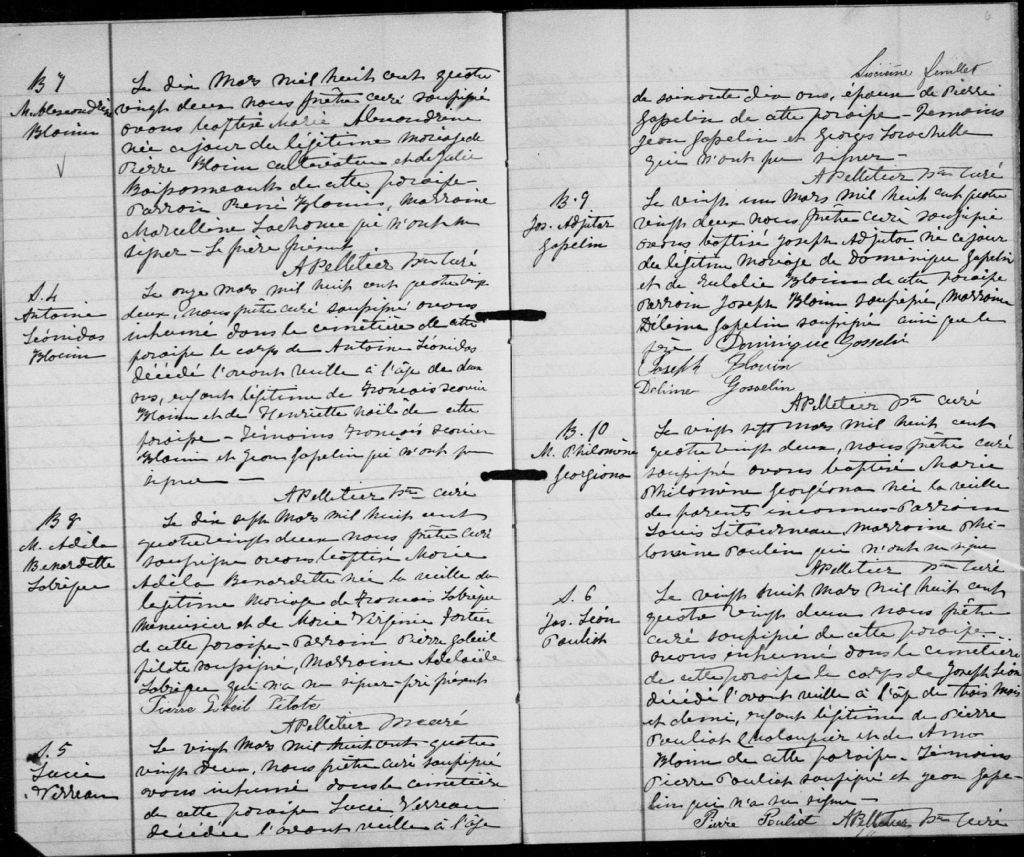 B 7
M. Alexandrine
Blouin
Le dix Mars mil huit cent quatre
vingt deux nous prêtre curé soussigné
avons baptisé Marie Alexandrine
née ce jour du légitime mariage de
Pierre Blouin cultivateur et de Julie
de cette paroisse
Parrain René Blouin, Marraine
Marcelline qui n'ont su
signer - Le père présent
A Pelletier Ptre Curé
S. 4
Antoine
Léonidas
Blouin
Le onze Mars mil huit cent quatre vingt
deux, nous prêtre curé soussigné avons
inhumé dans le cemetière de cette
paroisse le corps de Antoine Léonidas
décédé l'avant veille à l'âge de deux
ans, enfant légitime de François Xavier
Blouin et de Henriette Noël de cette
paroisse - Témoins François Xavier
Blouin et Jean Gosselin qui n'ont pu
signer -
A Pelletier Ptre curé
B 8
M. Adila
Benardette
Labrèque
Le dix sept Mars mil huit cent
quatre vingt deux nous prêtre curé
soussigné avons baptisé Marie
Adila Benardette née la veille du
légitime mariage de François Labrèque
menuisier et de Marie Virginie Fortier
de cette paroisse - Parrain Pierre Goleil
pilote soussigné, Marraine Adelaide
Labrèque qui n'a su signer - présents
Pierre Pilote
A Pelletier Ptre curé
S. 5
Lucie
Verreau
Le vingt Mars mil huit cent quatre
vingt deux, nous prêtre curé soussigné
avons inhumé dans le cemetière
de cette paroisse Lucie Verreau
décédée l'avant veille à l'âge
6
Sixième feuillet
de soixante dix ans, épouse de Pierre
Gosselin de cette paroisse - Témoins
Jean Gosselin et Georges Larochelle
qui n'ont pu signer -
A Pelletier Ptre Curé
B. 9
Jos. Adjutor
Gosselin
Le vingt un Mars mil huit cent quatre
vingt deux nous prêtre curé soussigné
avons baptisé Joseph Adjutor né ce jour
du légitime mariage de Dominique Gosselin
et de Eulalie Blouin de cette paroisse
Parrain Joseph Blouin soussigné, Marraine
Délima Gosselin soussignée ainsi que le
père Dominique Gosselin
Joseph Blouin
Delima Gosselin
A Pelletier Ptre curé
B. 10
M. Philomène
Georgiana
Le vingt sept Mars mil huit cent
quatre vingt deux, nous prêtre curé
soussigné avons baptisé Marie
Philomène Georgiana née la veille
de parents inconnus - Parrain
Louis Létourneau, marraine Phi-
lomène Paulin qui n'ont su signer
A Pelletier Ptre Curé
S. 6
Jos. Léon
Pouliot
Le vingt huit Mars mil huit cent
quatre vingt deux nous prêtre
curé soussigné de cette paroisse
avons inhumé dans le cemetière
de cette paroisse le corps de Joseph Léon
décédé l'avant veille à l'âge de trois mois
et demi, enfant légitime de Pierre
Pouliot et de
Blouin de cette paroisse - Témoins
Pierre Pouliot soussigné et Jean Gosse-
lin qui n'a su signer -
Pierre Pouliot A Pelletier Ptre Curé